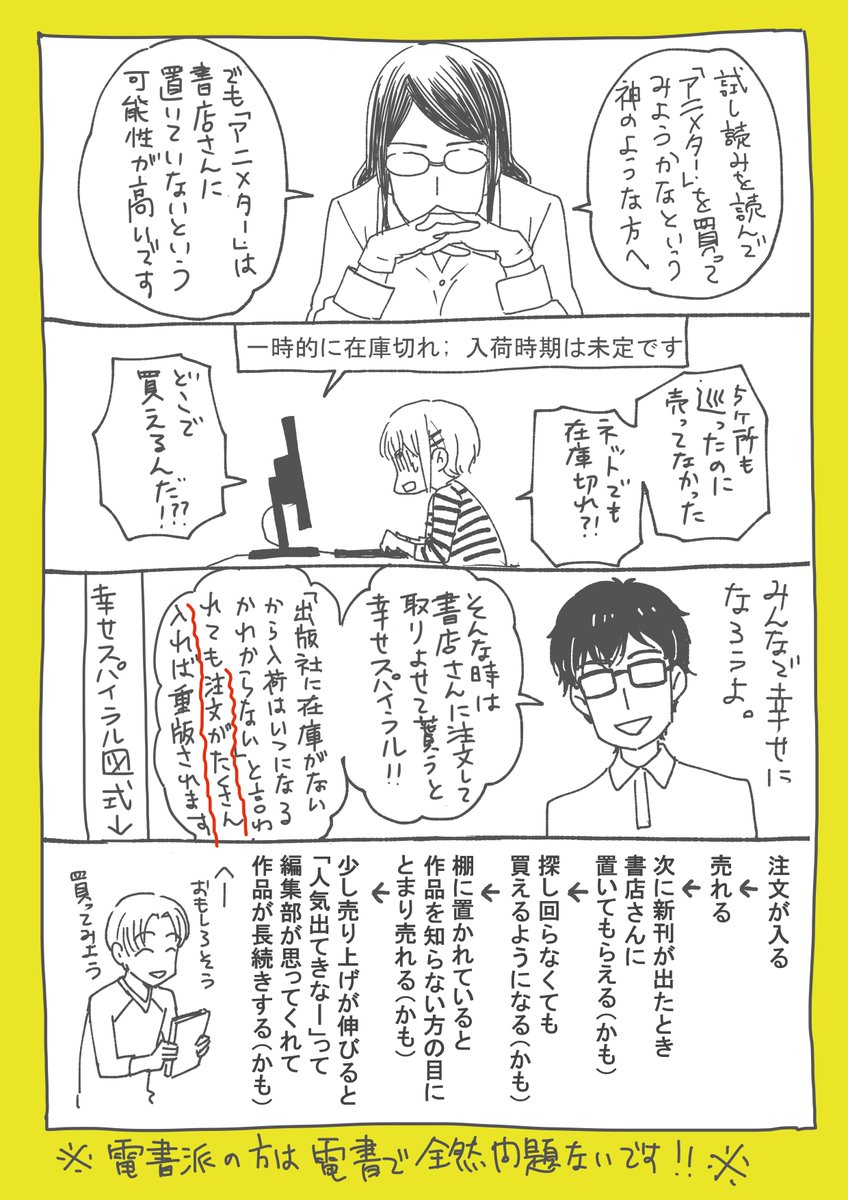 試し読みを読んで
「アニメタ―」を買って
みようかなという
神のような方へ
でも「アニメタ―」は
書店さんに
置いていないという
可能性が高いです
一時的に在庫切れ; 入荷時期は未定です
5ヶ所も
巡ったのに
売ってなかった
ネットでも
在庫切れ?!
どこで
買えるんだ!??
みんなで幸せに
なろうよ。
そんな時は
書店さんに注文して
取りよせて貰うと
幸せスパイラル!!
「出版社に在庫がない
から入荷はいつになる
かわからない」と言わ
れても注文がたくさん
入れば重版されます
幸せスパイラル図式↓
注文が入る
↓
売れる
↓
次に新刊が出たとき
書店さんに
置いてもらえる(かも)
↓
探し回らなくても
買えるようになる(かも)
↓
棚に置かれていると
作品を知らない方の目に
とまり売れる(かも)
↓
少し売り上げが伸びると
「人気出てきなー」って
編集部が思ってくれて
作品が長続きする(かも)
へー
おもしろそう
買ってみよう
※電書派の方は電書で全然問題ないです!!※